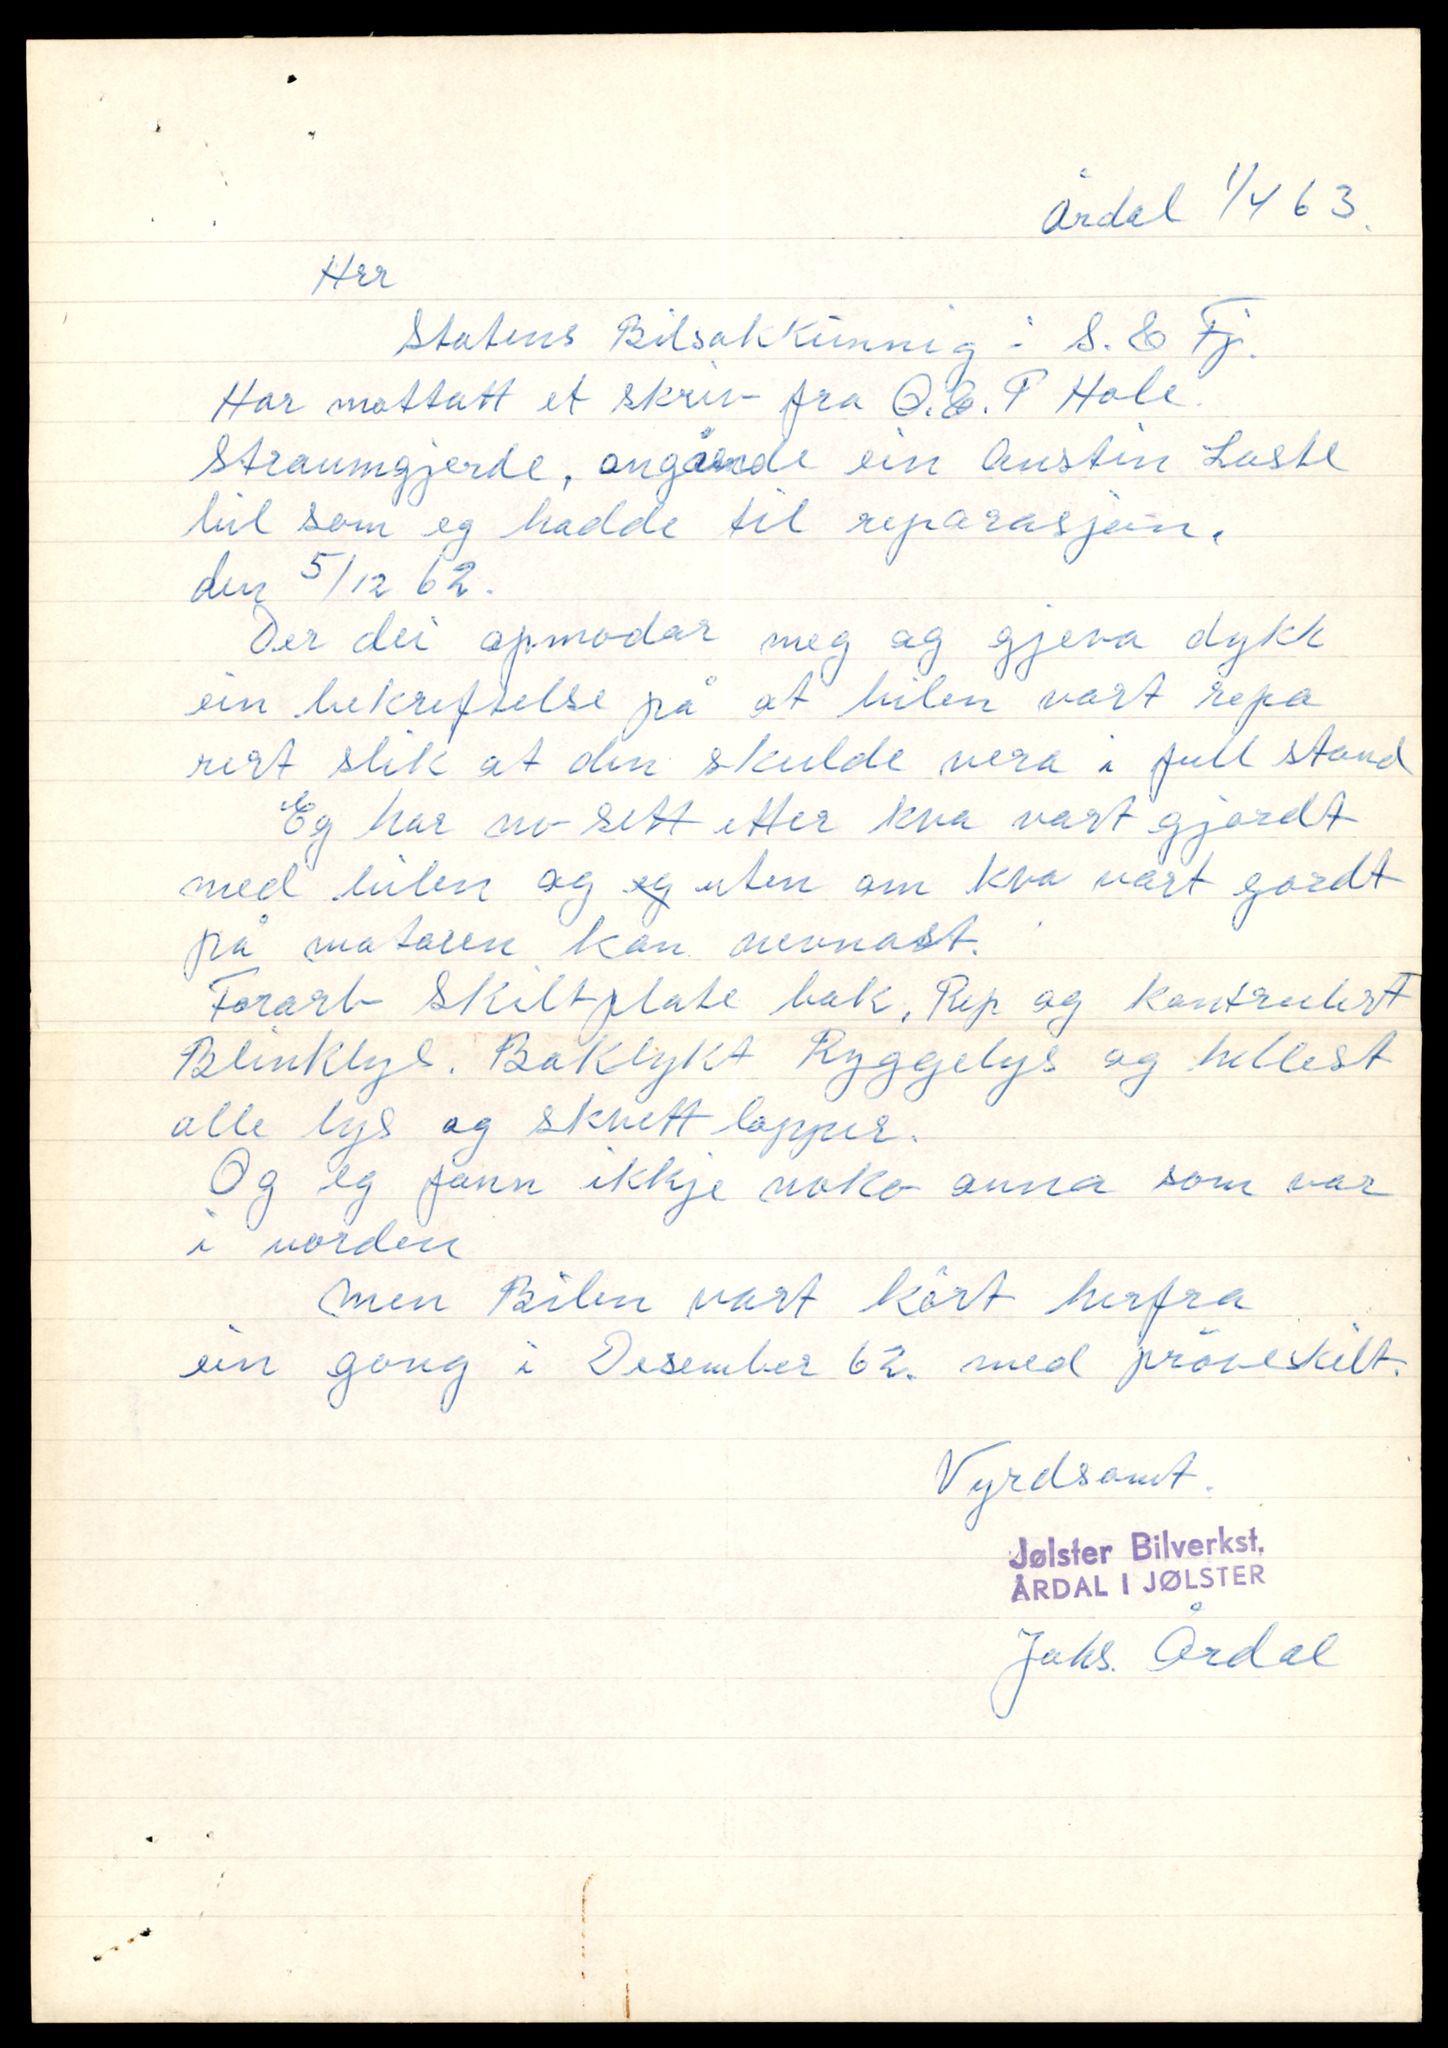 Årdal 1/4 63.
Herr
Statens Bilsakkunnig i S. & Fj.
Har mottatt et skriv fra O. & P Hole.
Straumgjerde, angående ein Austin Laste
bil som eg hadde til reparasjon.
den 5/12 62.
Der dei opmodar meg og gjeva dykk
ein bekreftelse på at bilen vart repa
rert slik at den skulde vera i full stand
Eg har no sett etter kva vart gjordt
med bilen og eg uten om kva vart gordt
på motoren kan nevnast.
Forarb Skiltplate bak, Rep og kontrolert
Blinklys. Baklykt Ryggelys og hellest
alle lys og skvett lapper.
Og eg fann ikkje noko anna som var
i uorden
Men Bilen vart kört herfra
ein gong i Desember 62. med pröveskilt.
Vyrdsamt.
Jølster Bilverkst.
ÅRDAL I JØLSTER
Johs. Årdal